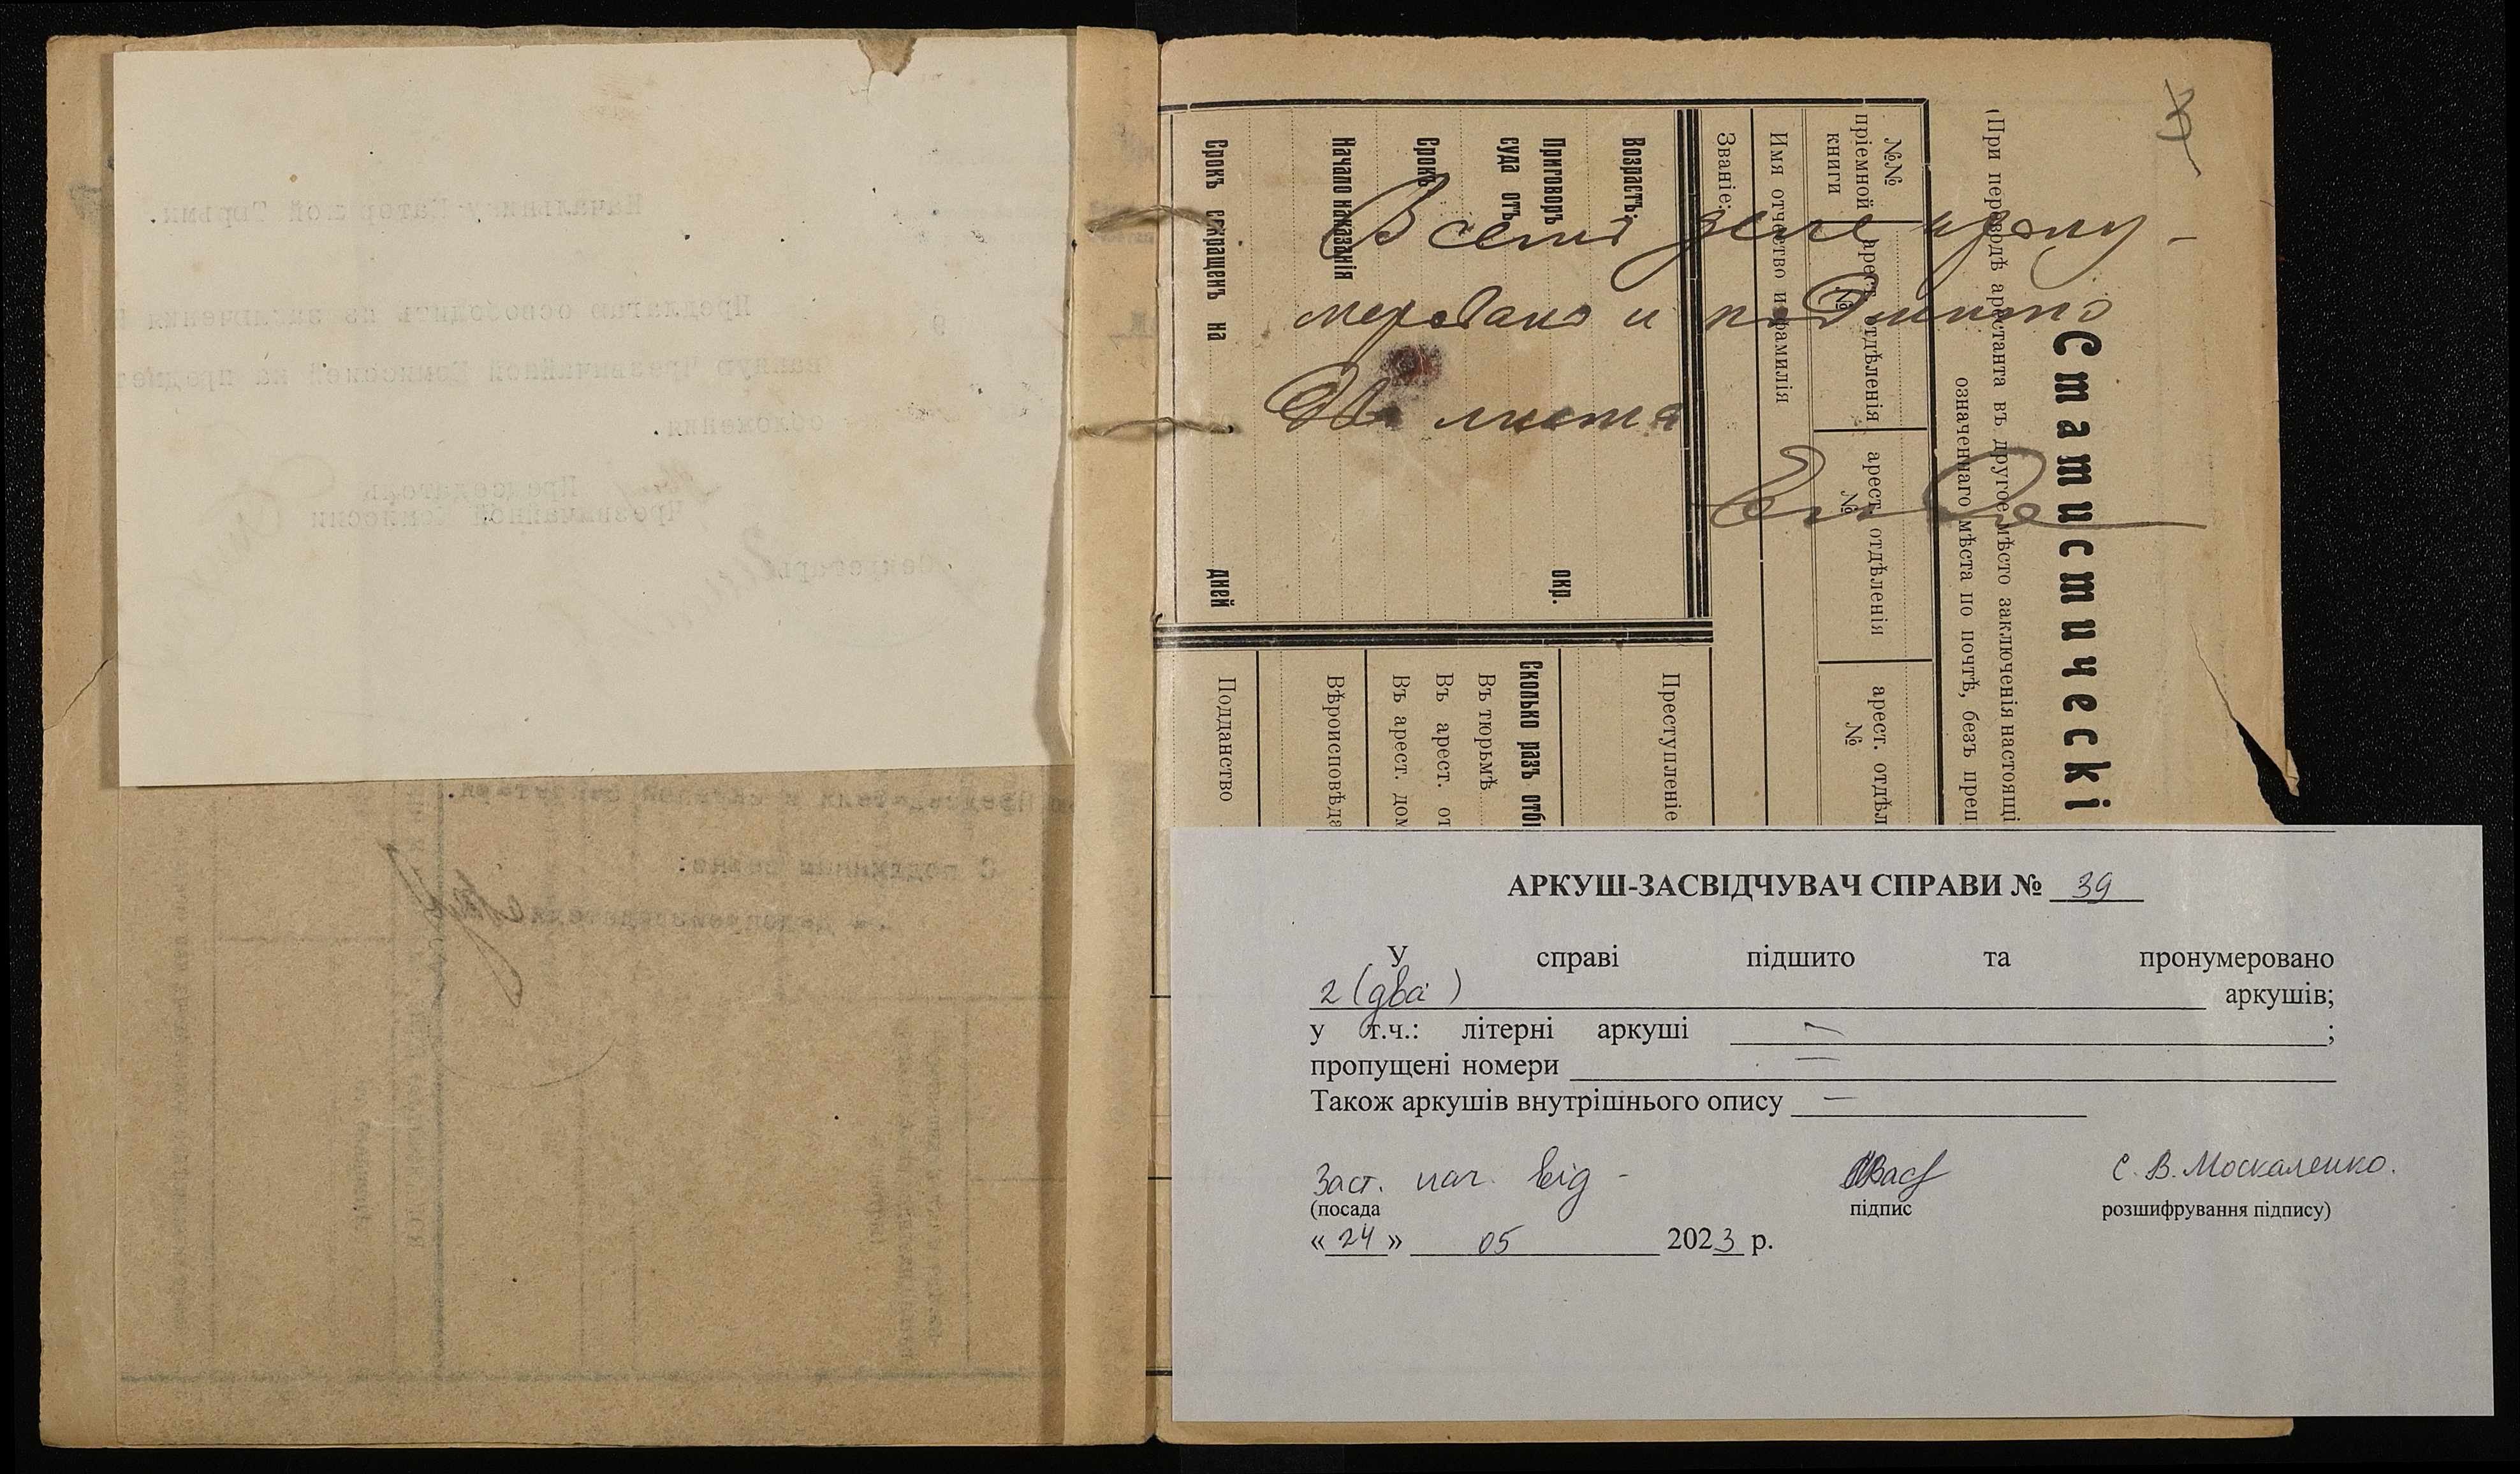 Начальнику Каторжной Тюрьмы.
Предлагаю освободить из заключения
Чрезвычайной Комиссией на предмет
обложения.
Председатель
Чрезвычайной Комиссии
Секретарь
Председателя и
С подлинным верно:
Делопроизводителя
3
Статистическі
(При переводѣ арестанта въ другое мѣсто заключенія настоящі
означеннаго мѣста по почтѣ, безъ преп
№№
пріемной
книги
арест. отдѣленія
№
арест. отдѣленія
№
арест. отдѣл
№
Имя отчество и фамилія
Званіе:
Возрастъ:
Приговоръ
суда отъ
окр.
Срокъ
Начало наказанія
Срокъ сокращенъ на
дней
Преступленіе
Сколько разъ отбы
Въ тюрьмѣ
Въ арест. от
Въ арест. дом
Вѣроисповѣда
Подданство
В сем деле прону-
меровано и подшито
Два листа
АРКУШ-ЗАСВІДЧУВАЧ СПРАВИ № 39
У справі підшито та пронумеровано
2 (два) аркушів;
у т.ч.: літерні аркуші — ;
пропущені номери —
Також аркушів внутрішнього опису —
Заст. нач. від - С. В. Москаленко.
(посада підпис розшифрування підпису)
« 24 » 05 2023 р.